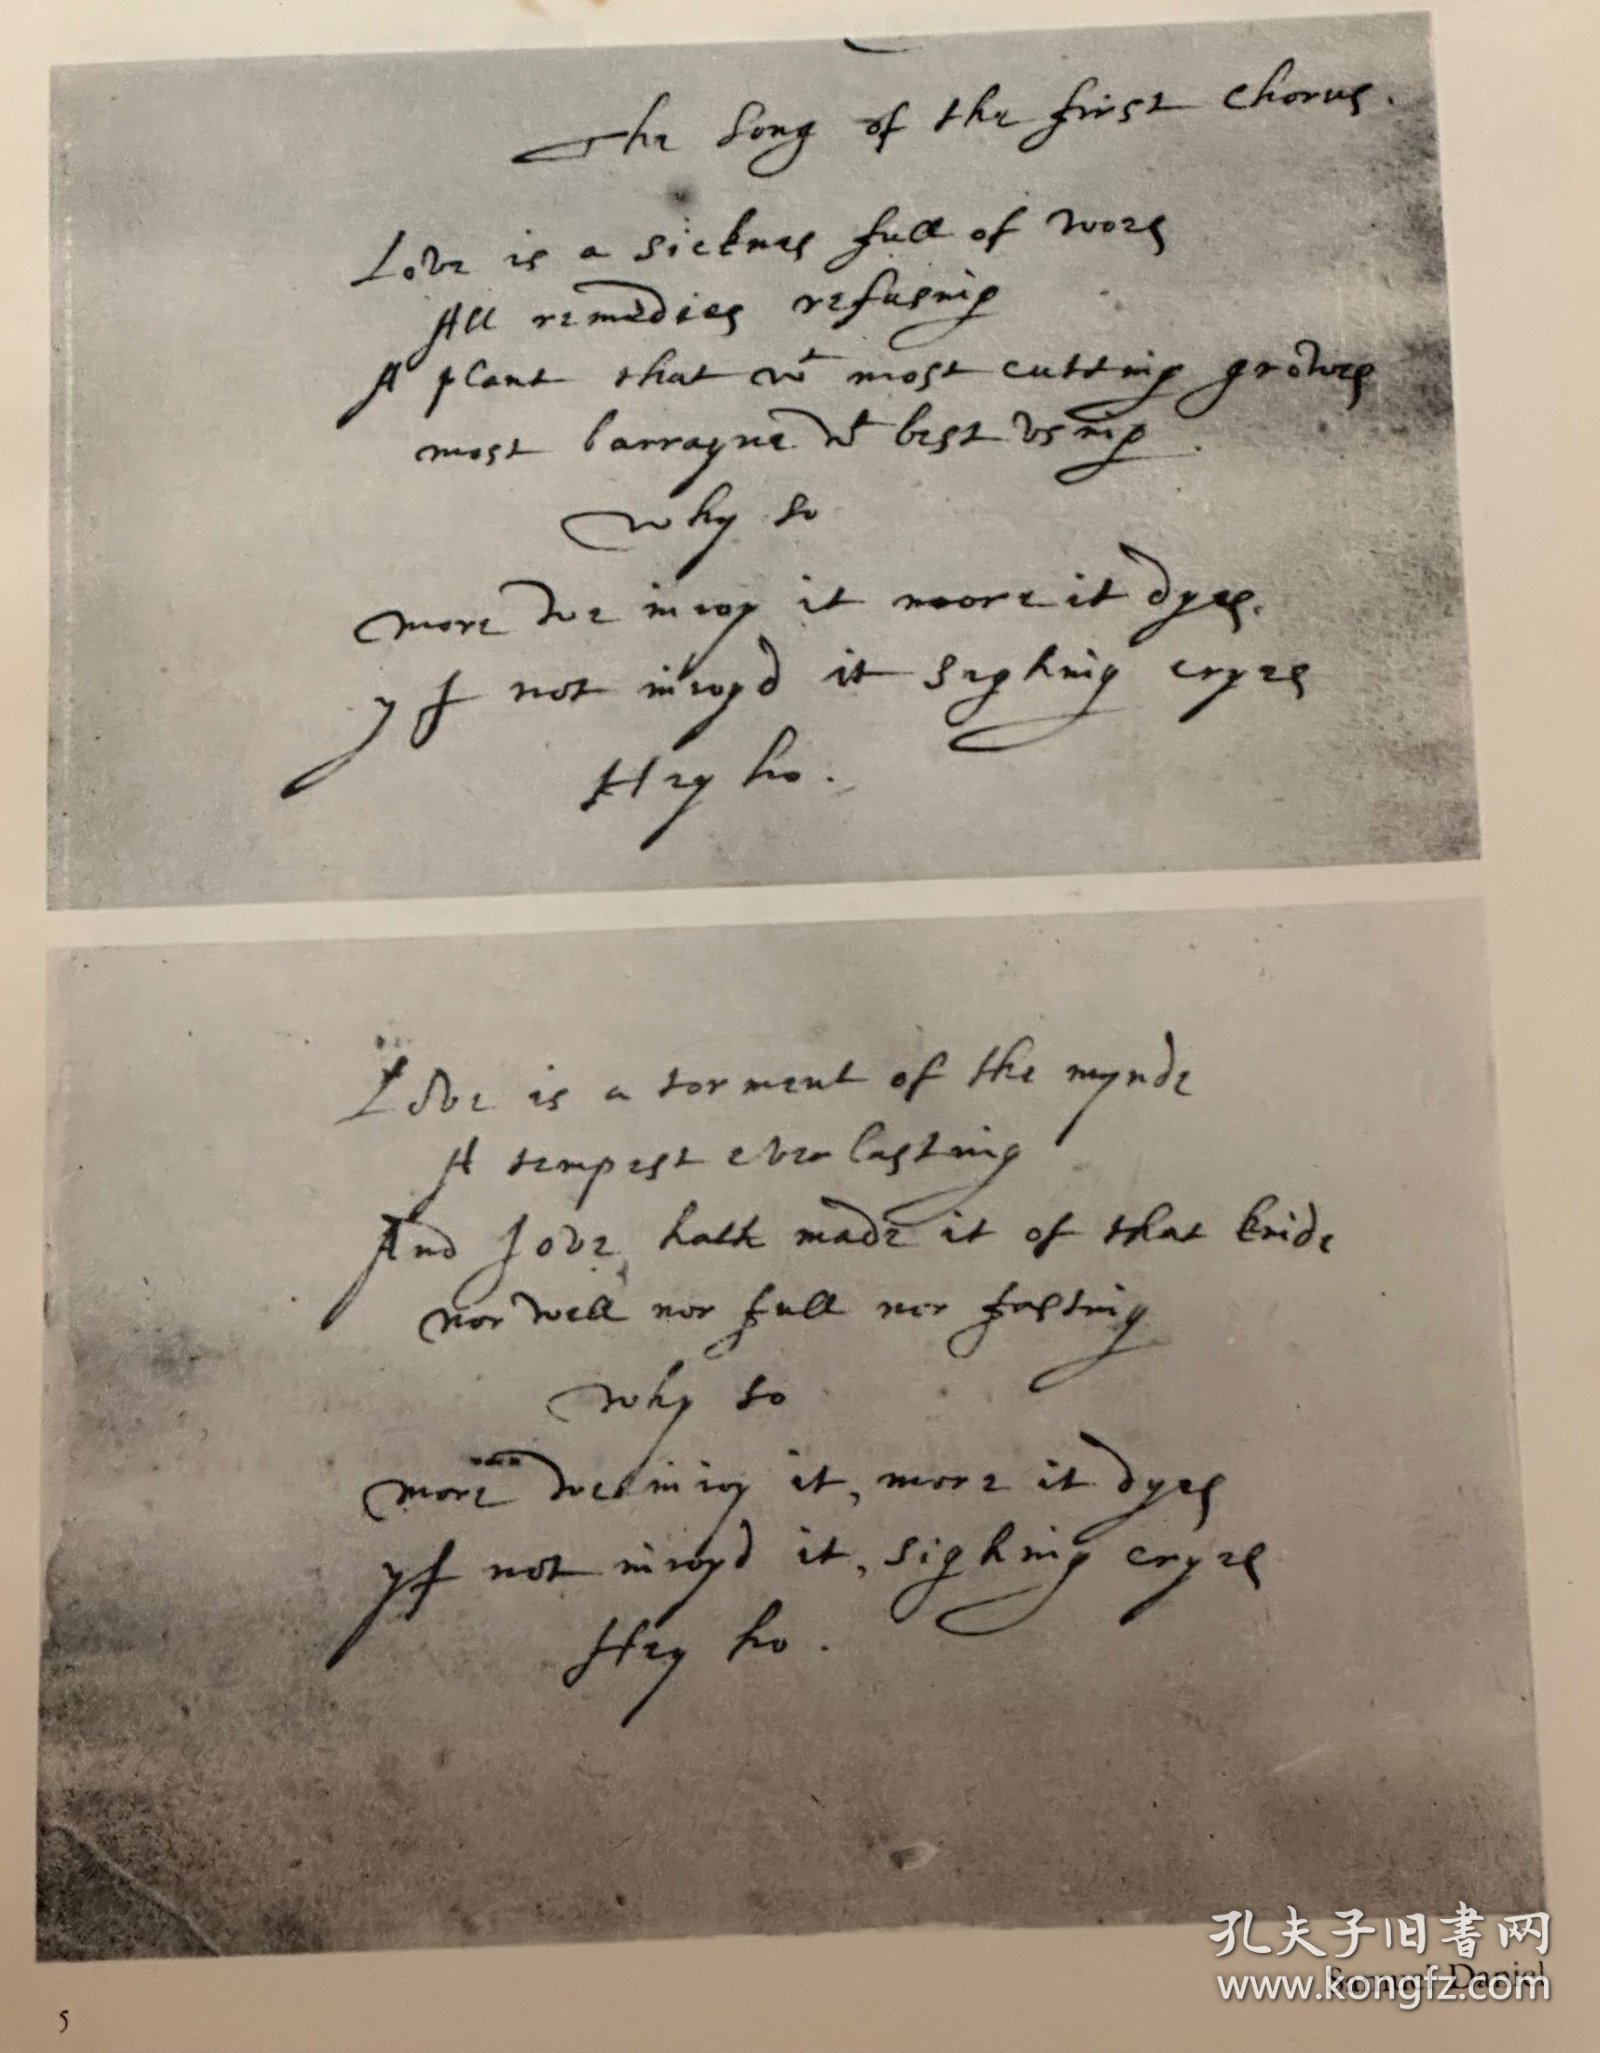 The Song of the first Chorus.
Love is a sicknes full of woes
All remedies refusing
A plant that wt most cutting growes
most barrayne wt best vsing
Why so
More we inioy it moore it dyes.
yf not inioyd it sighing cryes
Hey ho.
Love is a torment of the mynde
A tempest everlasting
And Jove hath made it of that kinde
nor well nor full nor fasting
Why so
More we inioy it, more it dyes
yf not inioyd it, sighing cryes
Hey ho.
孔夫子旧书网
Samuel Daniel
www.kongfz.com
5